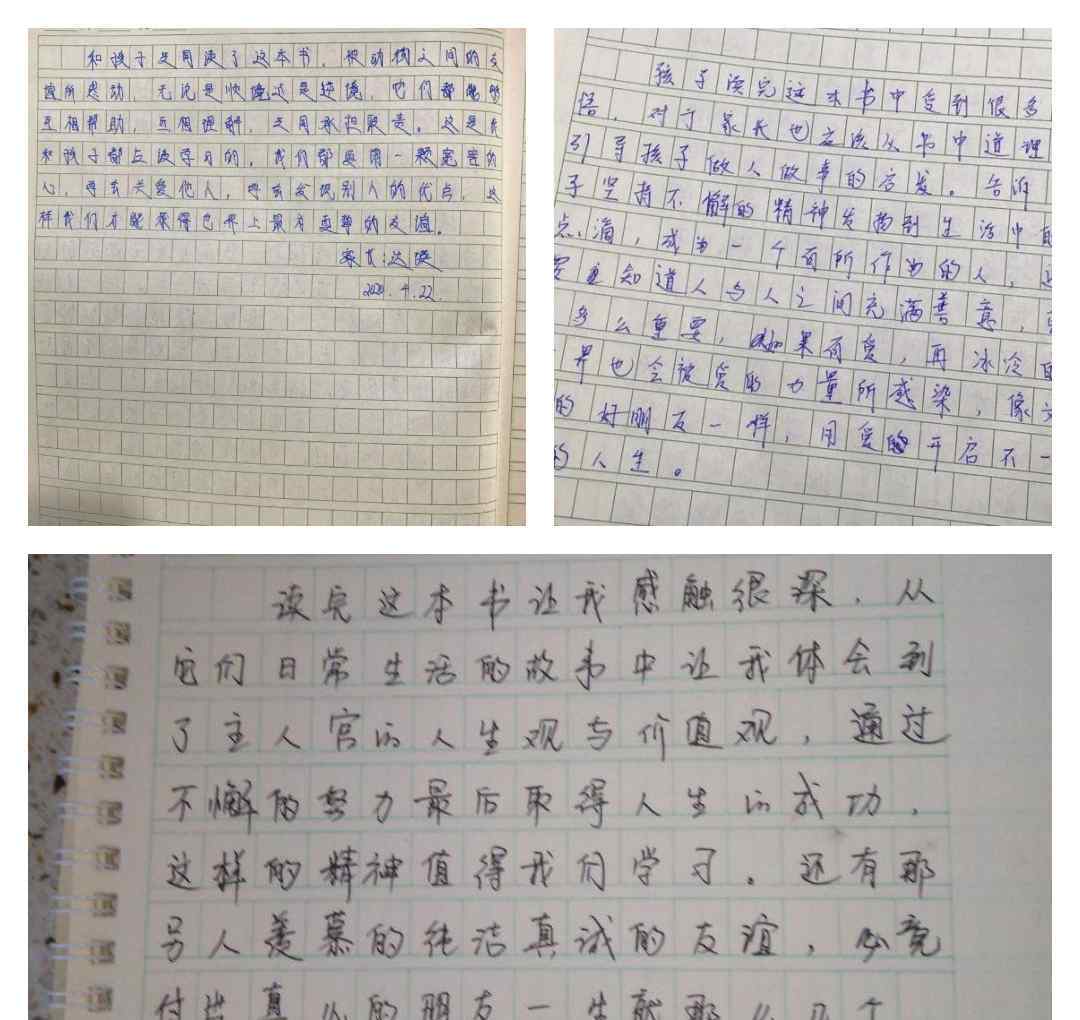 和孩子共同读了这本书，被动物之间的友
谊所感动，无论是顺境还是逆境，它们都能够
互相帮助，互相理解，共同承担艰差。这是
和孩子都应该学习的，我们都要用一颗宽容的
心，学会关爱他人，学会发现别人的优点，这
样我们才能获得世界上最有真挚的友谊。
家长：
2020.4.22.
孩子读完这本书中受到很多
悟，对于家长也应该从书中道理
引导孩子做人做事的启发。告诉
子坚持不懈的精神发扬到生活中的
点滴，成为一个有所作为的人，
要重知道人与人之间充满善意，
多么重要，如果有爱，再冰冷的
界也会被爱的力量所感染，像文
的好朋友一样，用爱的开启不一
的人生。
读完这本书让我感触很深，从
它们日常生活的故事中让我体会到
了主人官的人生观与价值观，通过
不懈的努力最后取得人生的成功，
这样的精神值得我们学习。还有那
另人羡慕的纯洁真诚的友谊，必竟
付出真心的朋友一生就那么几个